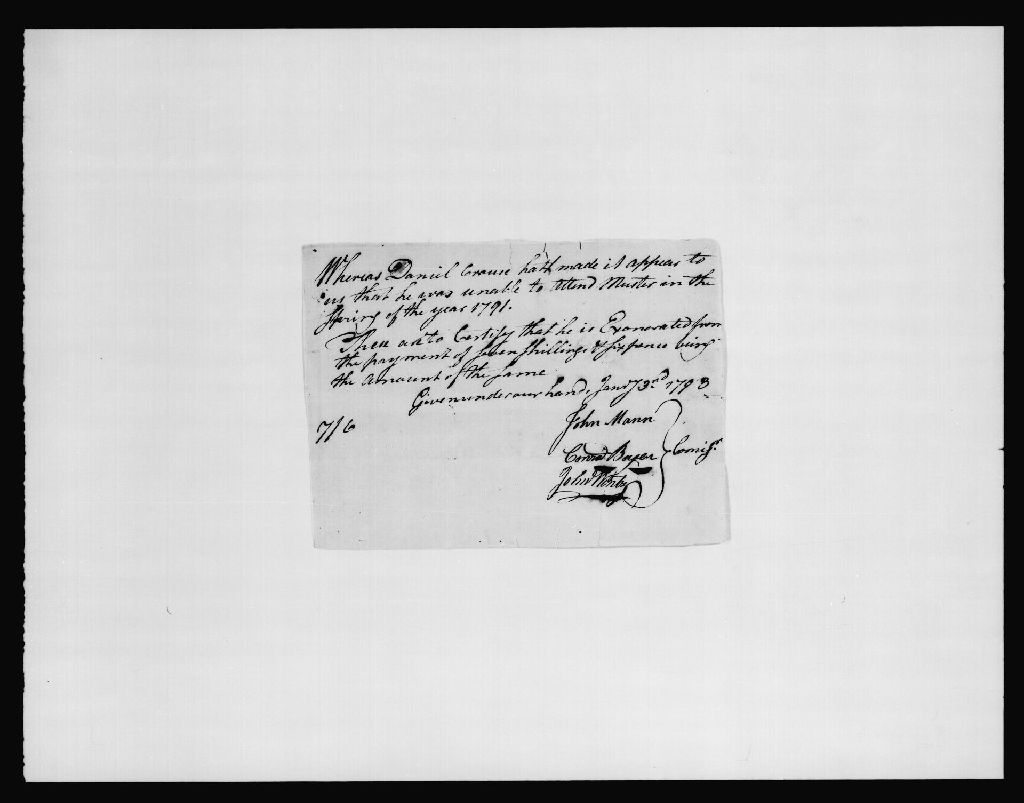 Whereas Daniel Crouse hath made it appear to
us that he was unable to attend Muster in the
Spring of the year 1791.
These are to Certify that he is Exonorated from
the payment of Seven Shillings & Sixpence being
the Amount of the Same
Given under our hands Janry 3rd 1793
7/6
John Mann
Conrad Boyer Comisrs
John